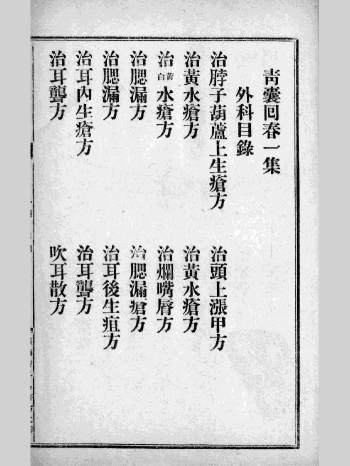 青囊囘春一集
外科目錄
治脖子葫蘆上生瘡方
治頭上漲甲方
治黃水瘡方
治黃水瘡方
治黃白水瘡方
治爛嘴唇方
治腮漏方
治腮漏瘡方
治腮漏方
治耳後生疽方
治耳內生瘡方
治耳聾方
治耳聾方
吹耳散方